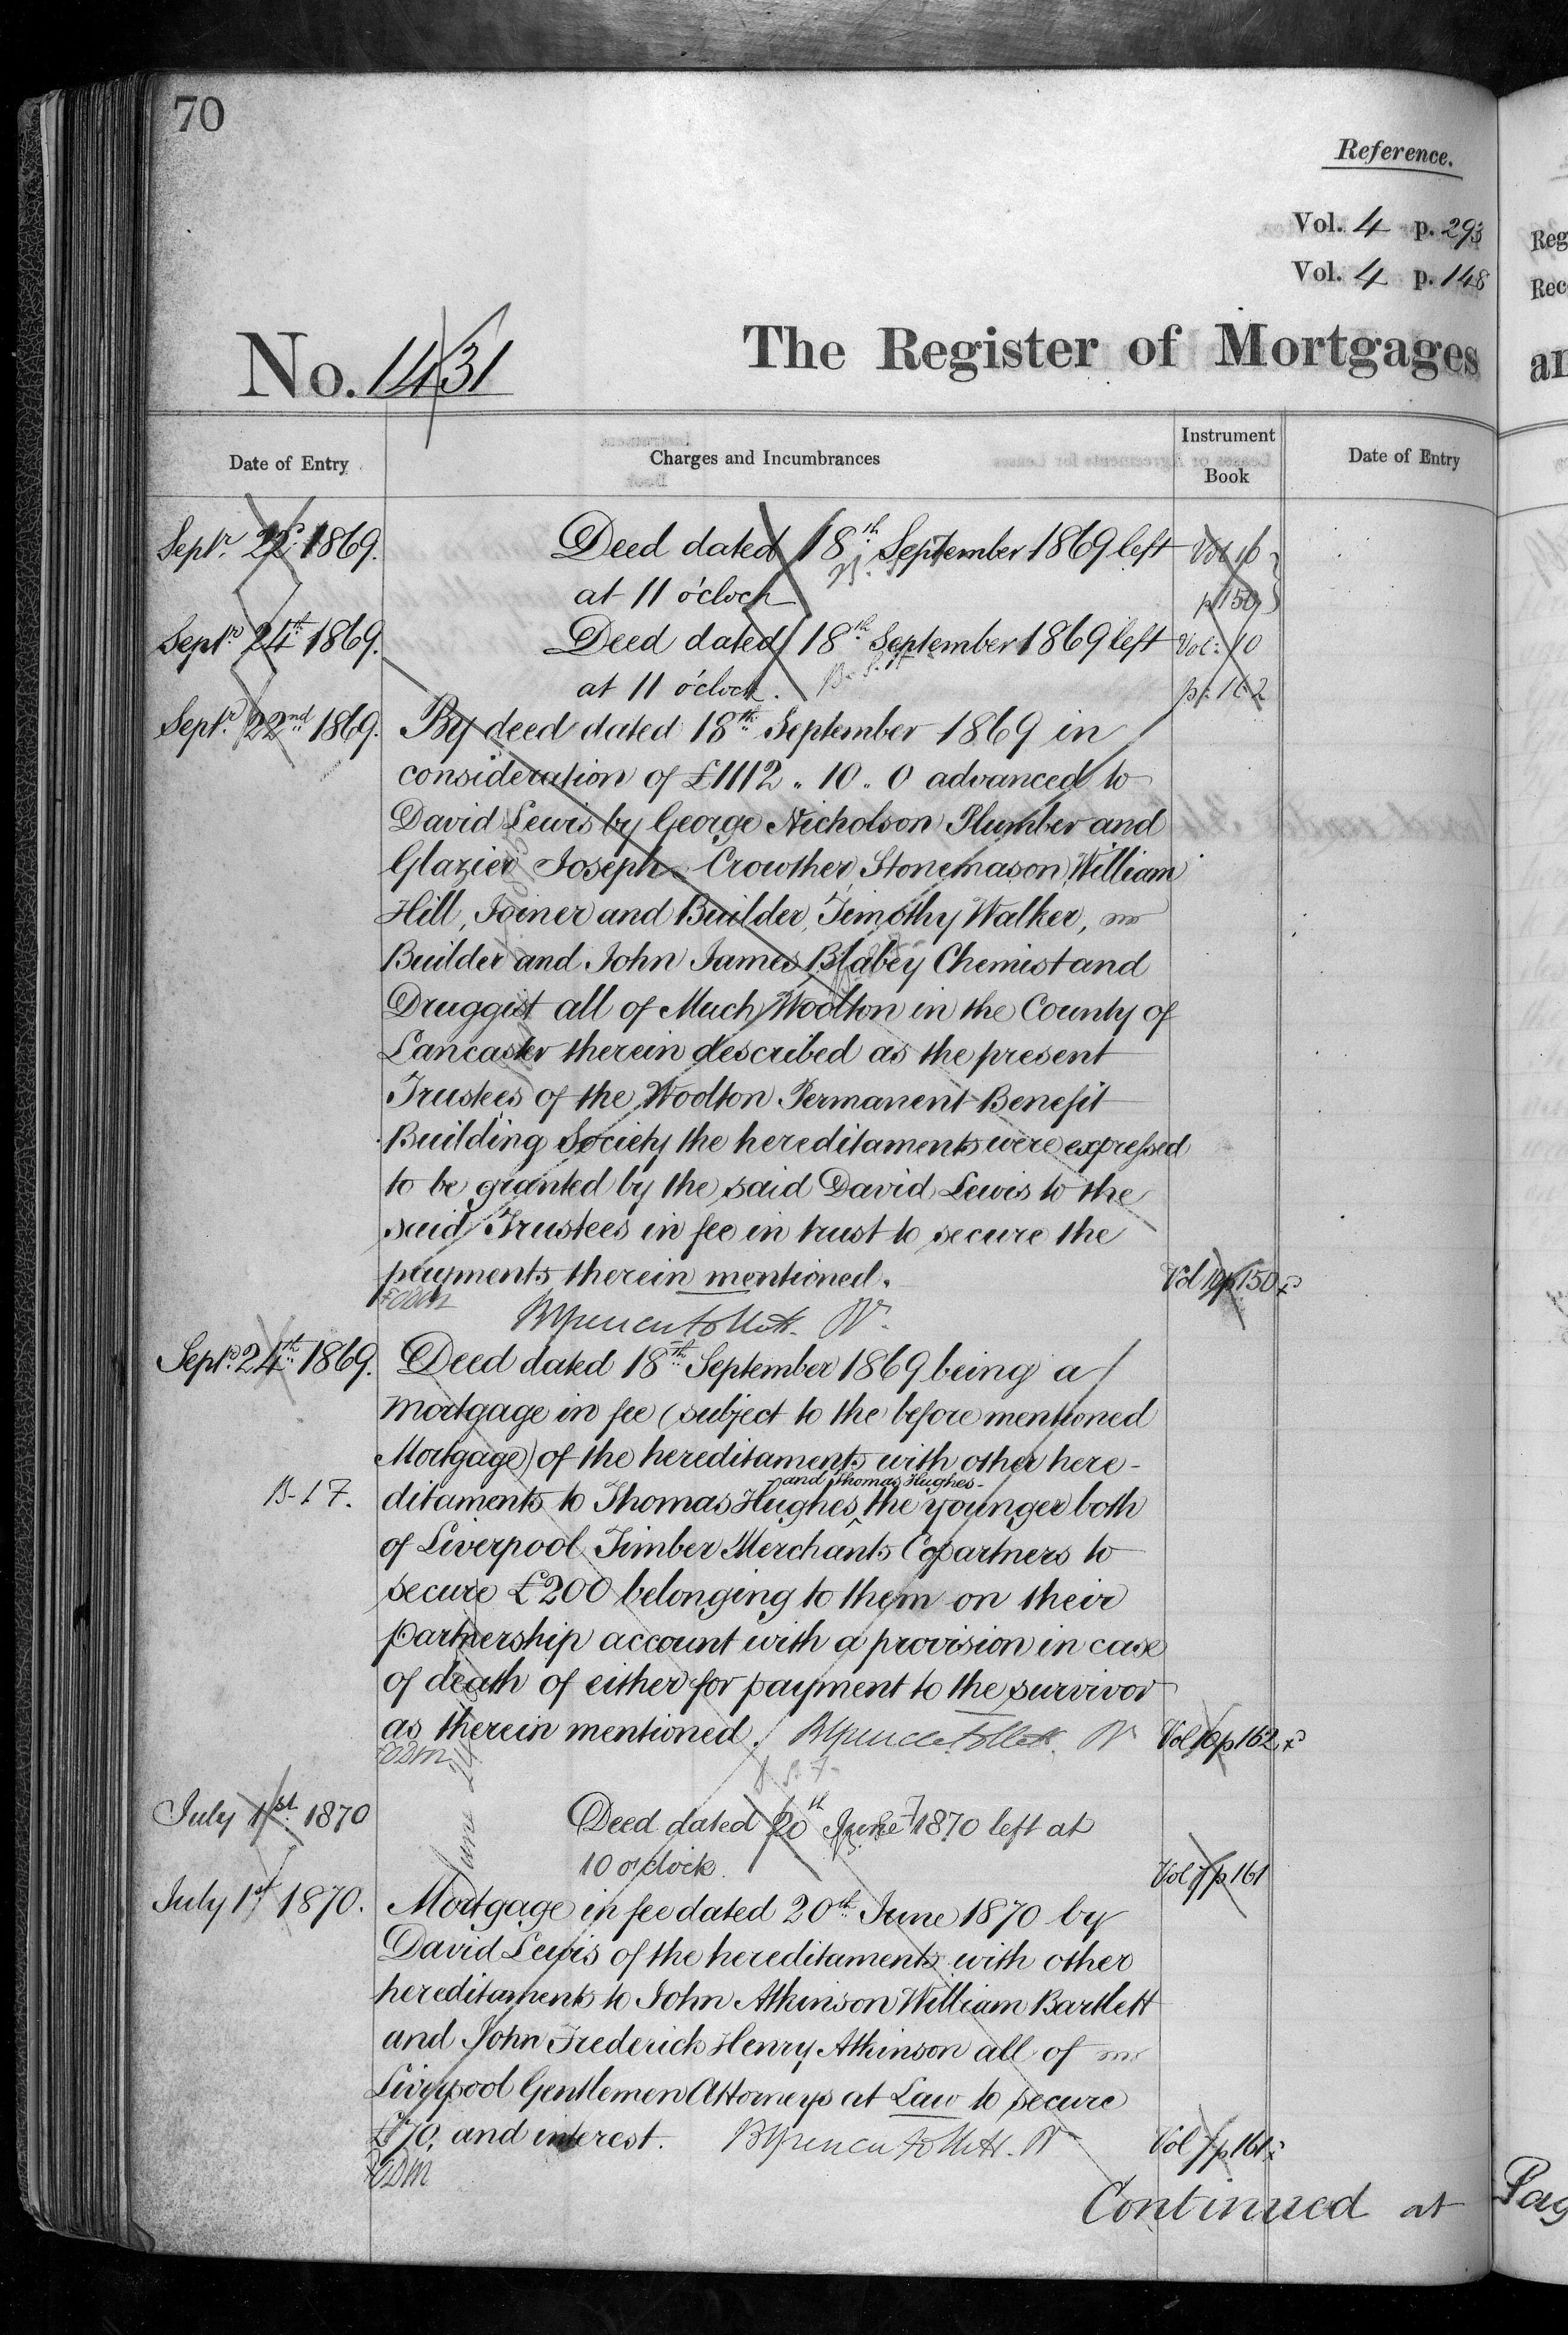 70
Reference.
Vol. 4 p. 293
Vol. 4 p. 148
No. 1431
The Register of Mortgages
Date of Entry
Charges and Incumbrances
Instrument
Book
Date of Entry
Septr. 22d. 1869.
Deed dated 18th September 1869 left
Vol 10
at 11 o'clock
p 150
Septr. 24th 1869.
Deed dated 18th September 1869 left
Vol: 10
at 11 o'clock.
p: 162
Septr. 22nd 1869.
By deed dated 18th September 1869 in
consideration of £1112 " 10 " 0 advanced to
David Lewis by George Nicholson Plumber and
Glazier Joseph Crowther, Stonemason, William
Hill, Joiner and Builder, Timothy Walker,
Builder and John James Blabey Chemist and
Druggist all of Much Woolton in the County of
Lancaster therein described as the present
Trustees of the Woolton Permanent Benefit
Building Society the hereditaments were expressed
to be granted by the said David Lewis to the
said Trustees in fee in trust to secure the
payments therein mentioned.
Vol 10 p 150
Septr. 24th 1869.
Deed dated 18th September 1869 being a
mortgage in fee (subject to the before mentioned
Mortgage) of the hereditaments with other here-
and Thomas Hughes
ditaments to Thomas Hughes the younger both
of Liverpool Timber Merchants Copartners to
secure £200 belonging to them on their
partnership account with a provision in case
of death of either for payment to the survivor
as therein mentioned.
Vol 10 p 162
July 1st 1870
Deed dated 20th June 1870 left at
10 o'clock.
Vol p 161
July 1st 1870.
Mortgage in fee dated 20th June 1870 by
David Lewis of the hereditaments with other
hereditaments to John Atkinson William Bartlett
and John Frederick Henry Atkinson all of
Liverpool Gentlemen Attorneys at Law to secure
£170, and interest.
Vol p 161
Continued at Pag
Reg
Rec